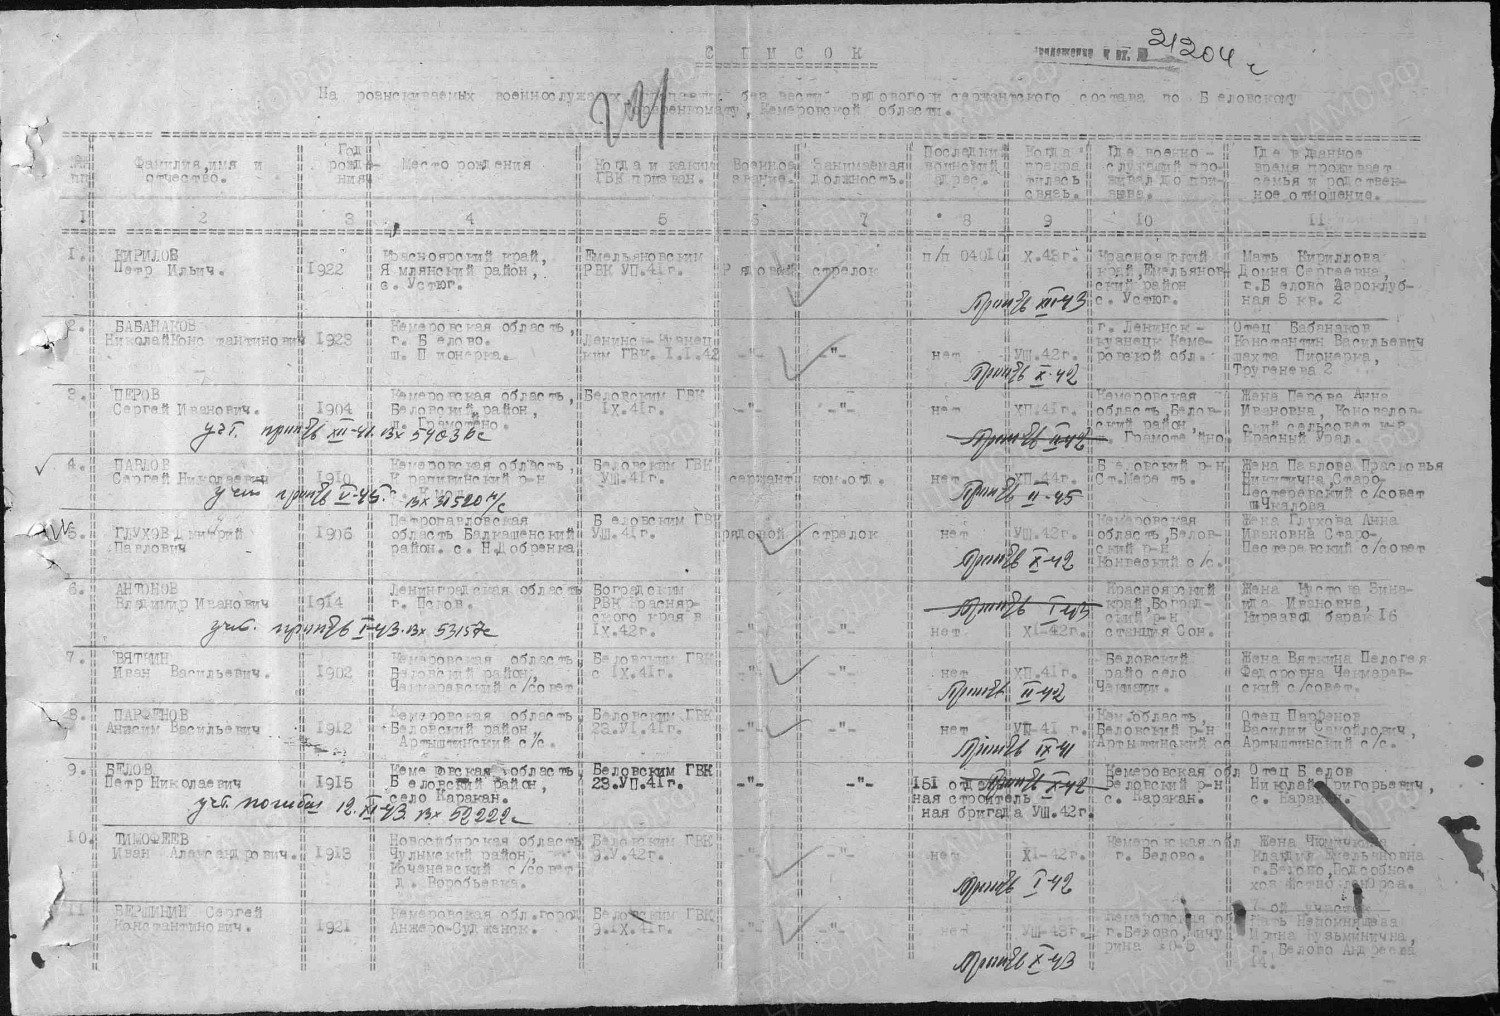 СПИСОК
21204с
На розыскиваемых военнослужащих без вести рядового и сержантского состава по Беловскому
Кемеровской области.
№№ пп
Фамилия, имя и отчество.
Год рождения
Место рождения
Когда и каким ГВК призван.
Военное звание.
Занимаемая должность.
Последний воинский адрес.
Когда прекратилась связь.
Где военнослужащий проживал до призыва.
Где в данное время проживает семья и родственное отношение.
1 2 3 4 5 6 7 8 9 10 11
1. КИРИЛОВ Петр Ильич.
1922
Красноярский край,
Ямлянский район,
с. Устюг.
Емельяновским РВК УП.41г.
Рядовой
стрелок
п/п 04010
Х.43г.
Красноярский край, Емельяновский район с. Устюг.
Мать Кириллова Домна Сергеевна, г.Белово Аэроклубная 5 кв. 2
XII-43
2. БАБАНАКОВ Николай Константинович
1923
Кемеровская область,
г. Белово.
ш. Пионерка.
Ленинск-Кузнецким ГВК. 1.1.42
-"-
-"-
нет
УШ.42г.
г. Ленинск-кузнецк Кемеровской обл.
Отец Бабанаков Константин Васильевич шахта Пионерка, Тругенева 2
X-42
3. ПЕРОВ Сергей Иванович.
1904
Кемеровская область,
Беловский район,
д. Грамотено.
Беловским ГВК 1Х.41г.
-"-
-"-
нет
ХП.41г.
Кемеровская область, Беловский район, Грамотейно.
Жена Перова Анна Ивановна, Коновалов-ский сельсовет к-з Красный Урал.
уч. XII-41. вх 54036с
4. ПАВЛОВ Сергей Николаевич
1910
Кемеровская область,
Крапивинский р-н
Беловским ГВК УШ.41г.
сержант
ком.отд.
нет
ХП.44г.
Беловский р-н Ст.Мереть.
Жена Павлова Прасковья Никитична Старо-Пестеревский с/совет ш Чкалова
II-45
5. ГЛУХОВ Дмитрий Павлович
1906
Петропавловская область Балкашенский район. с. Н.Добренка
Беловским ГВК УШ.41г.
рядовой
стрелок
нет
УШ.42г.
Кемеровская область, Беловский р-н Коневский с/с.
Жена Глухова Анна Ивановна Старо-Пестеревский с/совет
X-42
6. АНТОНОВ Владимир Иванович
1914
Ленинградская область г. Псков.
Боградским РВК Красноярского края в 1Х.42г.
-"-
-"-
нет
Х1-42г.
Красноярский край, Боградский р-н станция Сон.
Ивановна, Кирзавод барак 16
уч. I-43. вх 53157с
7. ВЯТКИН Иван Васильевич.
1902
Кемеровская область
Беловский район,
Чекмаревский с/совет
Беловским ГВК с 1Х.41г.
-"-
-"-
нет
ХП.41г.
Беловский райо село
Жена Вяткина Пелогея Федоровна Чекмарев-ский с/совет.
II-42
8. ПАРФЕНОВ Анисим Васильевич
1912
Кемеровская область
Беловский район
Артыштинский с/с.
Беловским ГВК 22.У1.41г.
-"-
-"-
нет
УП-41 г.
Кем.область, Беловский р-н Артыштинский сс
Отец Парфенов Василий Самойлович, Артыштинский с/с.
IX-41
9. БЕЛОВ Петр Николаевич
1915
Кемеровская область,
Беловский район,
село Каракан.
Беловским ГВК 23.УП.41г.
-"-
-"-
151 отдельная строительная бригада УШ.42г.
Кемеровская обл Беловский р-н с. Каракан.
Отец Белов Николай Григорьевич, с. Каракан
уч. погибш 12.XI-43 вх 52222с
10. ТИМОФЕЕВ Иван Александрович.
1913
Новосибирская область
Чулымский район,
Кочаневский с/совет
д. Воробьевка.
Беловским ГВК 9.У.42г.
-"-
-"-
нет
Х1-42г.
Кемеровская обл г. Белово.
Клавдия Емельяновна г.Белово, Подсобное
I-42
11 ВЕРШИНИН Сергей Константинович.
1921
Кемеровская обл.город
Анжеро-Судженск.
Беловским ГВК 9.1Х.41г.
-"-
-"-
нет
УШ-43г.
Кемеровская об г.Белово,
Мать Непомнящева Ирина Кузьминична, г. Белово
X-43